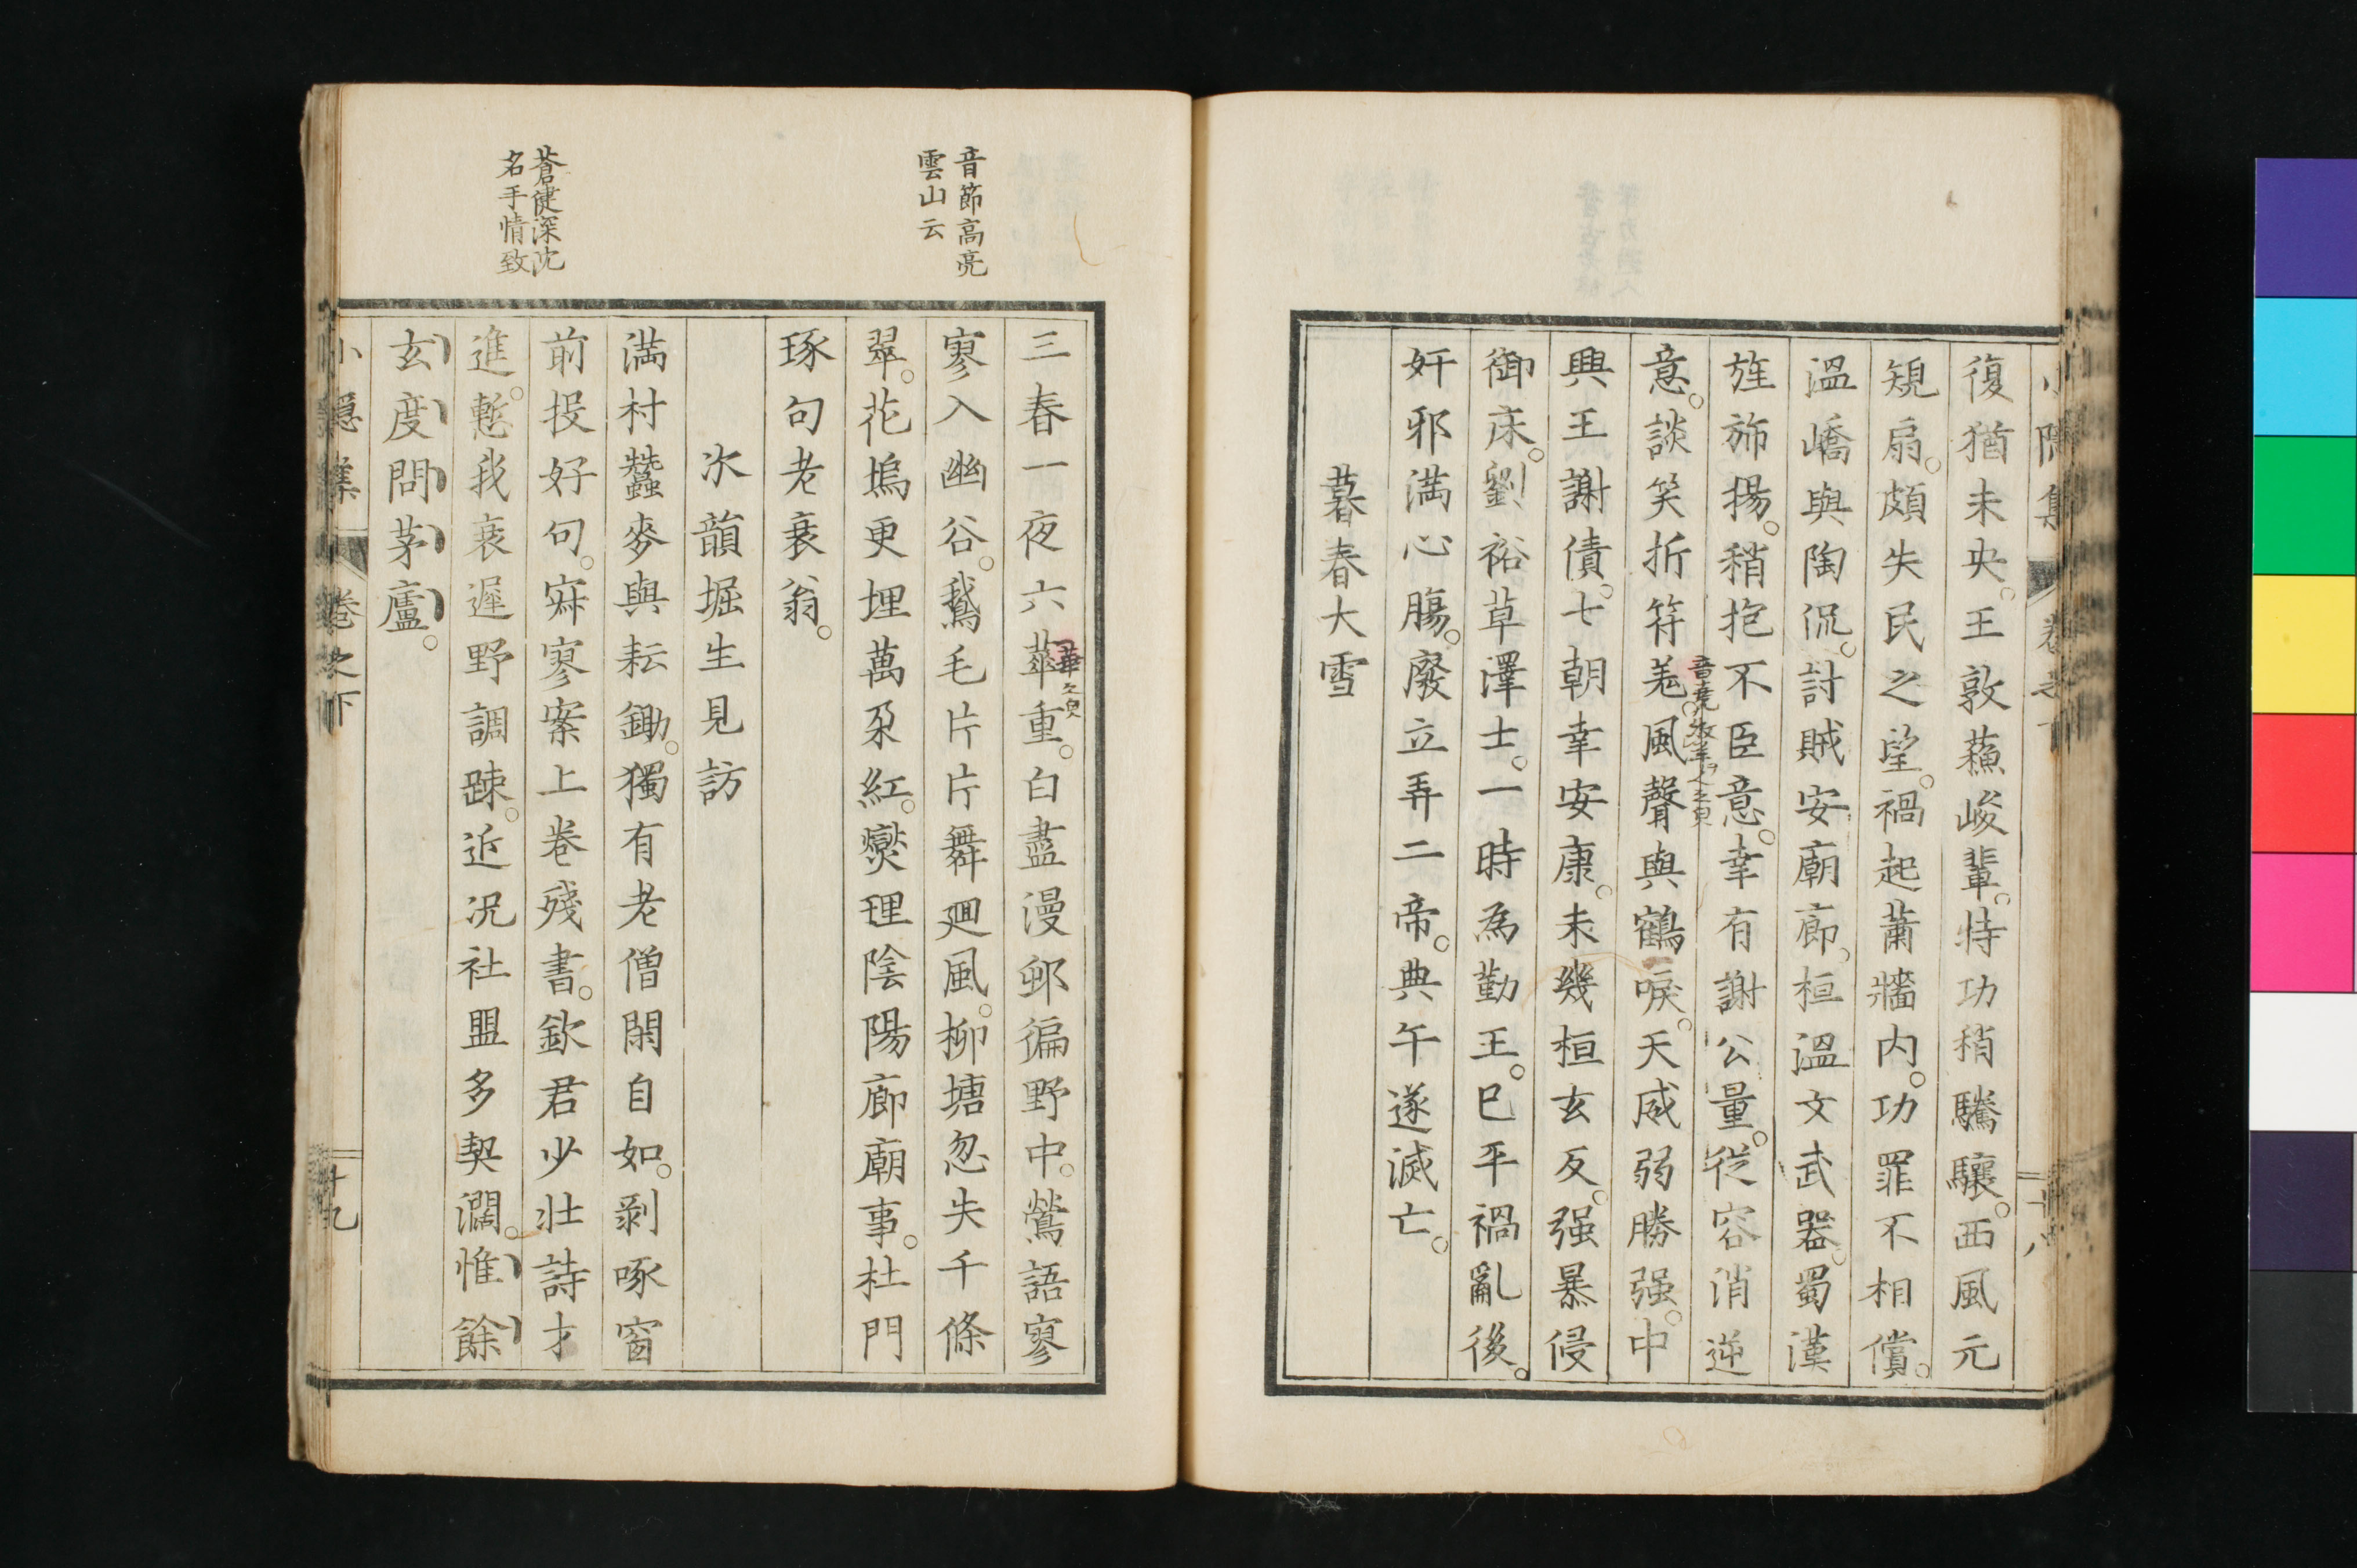 復猶未央王敦蘓峻輩恃功稍驕驤西風元
規扇頗失民之望禍起蕭牆内功罪不相償
溫嶠與陶侃討賊安廟廊桓溫文武器蜀漢
旌斾揚稍抱不臣意幸有謝公量從容消逆
意談笑折符羌風聲與鶴唳天威弱勝强中
興王謝債七朝幸安康未幾桓玄反强暴侵
御床劉裕草澤士一時為勤王已平禍亂後
奸邪満心膓廢立弄二帝典午遂滅亡
暮春大雪
音節高亮
雲山云
三春一夜六蕐重白盡漫郊徧野中鶯語寥
寥入幽谷鵞毛片片舞廻風柳塘忽失千條
翠花塢更埋萬朶紅爕理陰陽廊廟事杜門
琢句老衰翁
次韻堀生見訪
蒼健深沈
名手情致
満村蠶麥與耘鋤獨有老僧閑自如剥啄窗
前投好句寂寥案上巻殘書欽君少壯詩才
進慙我衰遲野調踈近况社盟多契濶惟餘
玄度問茅廬
小隱集 巻之下 十九